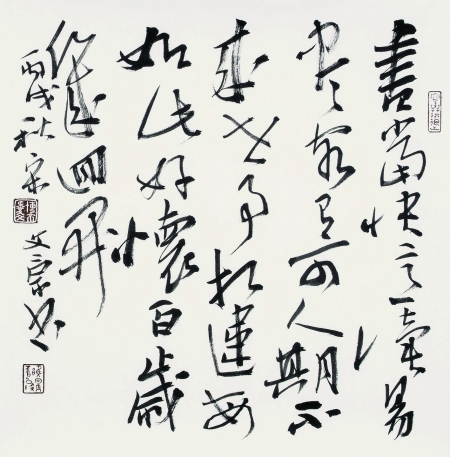 書當快意讀易
盡客有可人期不
來世事相違每
如此好懷百歲
幾回開
丙戌秋宋
文京书